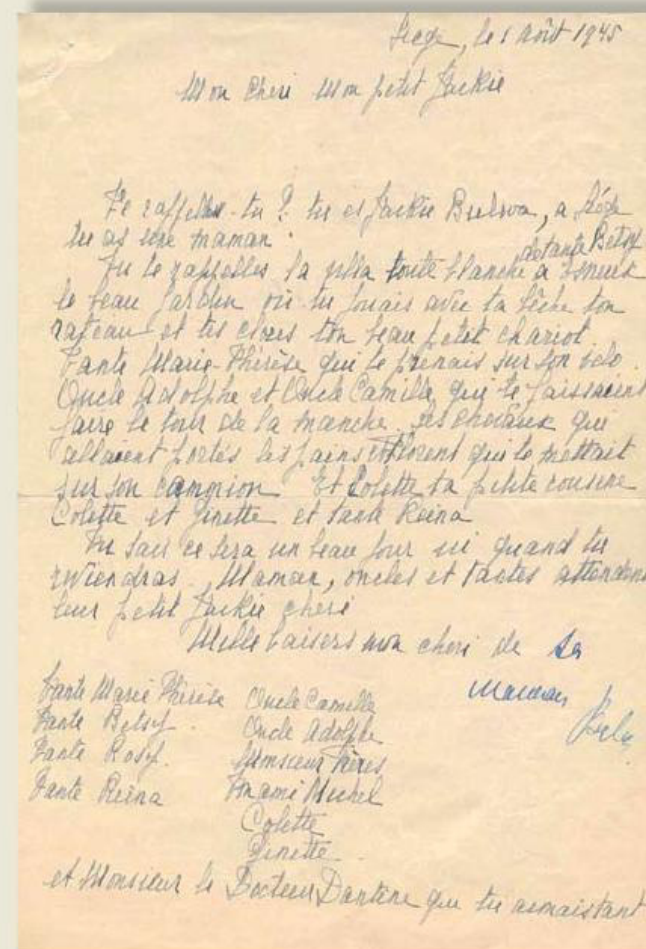 Liege, le 1 Août 1945
Mon Cheri Mon petit Jackie
Te rappelles-tu ? tu es Jackie, a Liége
tu as une maman.
de tante Betsy
Tu te rappelles la villa toute blanche a
le beau Jardin où tu jouais avec ta bêche ton
rateau et tes ton beau petit chariot.
Tante Marie-Thérèse qui te prenais sur son velo
Oncle Adolphe et Oncle Camille qui te faissaient
faire le tour de la manche. ses chevaux qui
allaient portés les pains Florent qui te mettait
sur son camion Et Colette ta petite cousine
Colette et Ginette et tante Reina
Tu sais ce sera un beau jour ici quand tu
reviendras. Maman, oncles et tantes attendent
leur petit Jackie cheri
Mille baisers mon cheri de ta
maman
Tante Marie Thérèse Oncle Camille
Tante Betsy. Oncle Adolphe
Tante Rosy. Monsieur
Tante Reina Michel
Colette
Ginette
et Monsieur le Docteur Dantine que tu aimais tant